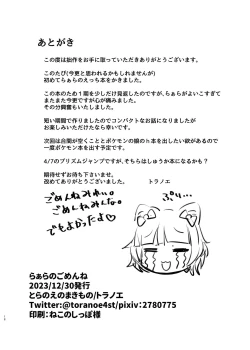 あとがき
この度は拙作をお手に取っていただきありがとうございます。
このたび(今更と思われるかもしれませんが)
初めてらぁらのえっち本をかきました。
この本のため1期を少しだけ見返したのですが、らぁらがよいこすぎて
またまた今更ですが心が痛みました。
その分興奮もいたしました。
短い期間で作りましたのでコンパクトなお話になりましたが
お楽しみいただけたなら幸いです。
次回は台間が空くこととポケモンの娘のh本を出したい欲があるので
一度ポケモン本を出す予定です。
4/7のプリズムジャンプですが、そちらはしゅうか本になるかも?
期待せずお待ち下さいませ。
改めてありがとうございました。 トラノエ
ごめんねみれぃ。
ごめんねみんな。
でもよかったよ♡
ぷり…
らぁらのごめんね
2023/12/30発行
とらのえのまきもの/トラノエ
Twitter:@toranoe4st/pixiv:2780775
印刷:ねこのしっぽ様